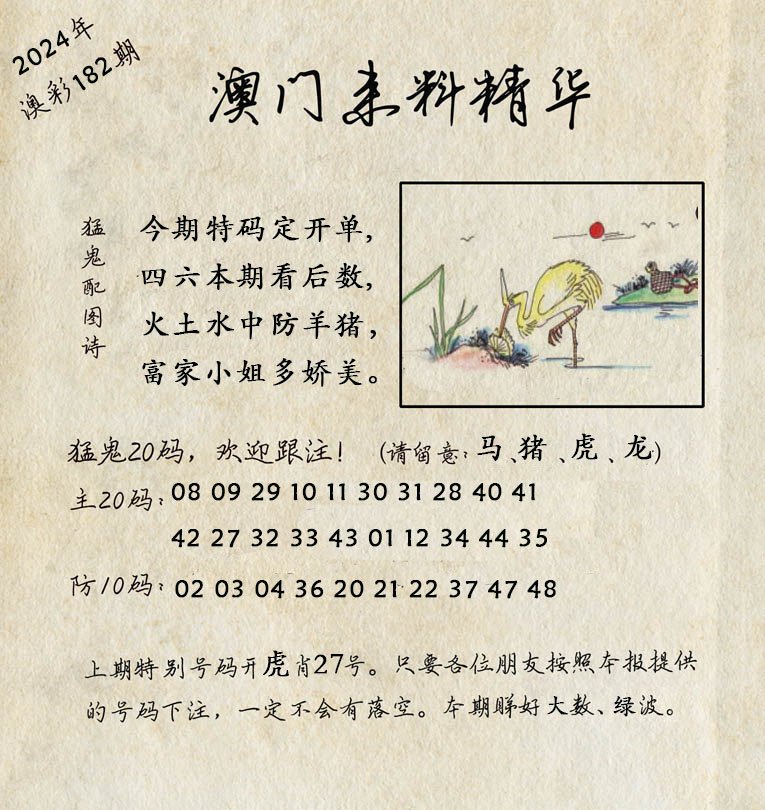 2024年
澳彩182期
澳门来料精华
猛鬼配图诗
今期特码定开单，
四六本期看后数，
火土水中防羊猪，
富家小姐多娇美。
猛鬼20码，欢迎跟注！（请留意：马、猪、虎、龙）
主20码：08 09 29 10 11 30 31 28 40 41
42 27 32 33 43 01 12 34 44 35
防10码：02 03 04 36 20 21 22 37 47 48
上期特别号码开虎肖27号。只要各位朋友按照本报提供
的号码下注，一定不会有落空。本期睇好大数、绿波。